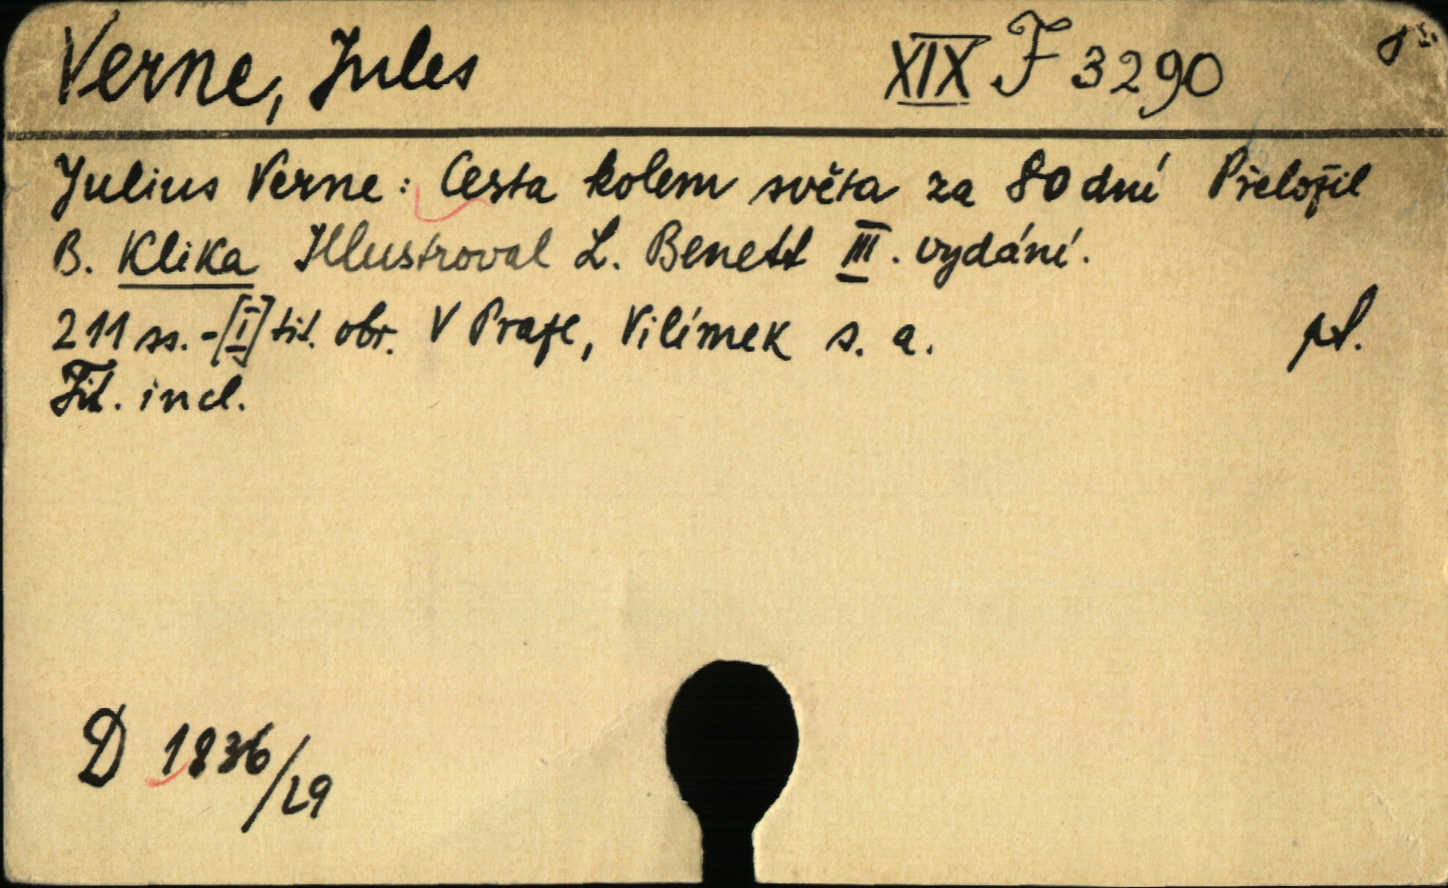 Verne, Jules XIX F 3290 8°
Julius Verne: Cesta kolem světa za 80 dní Přeložil
B. Klika Illustroval L. Benett III. vydání.
211 ss. - [I] tit. obr. V Praze, Vilímek s. a. pl.
Tit. incl.
D 1836/29